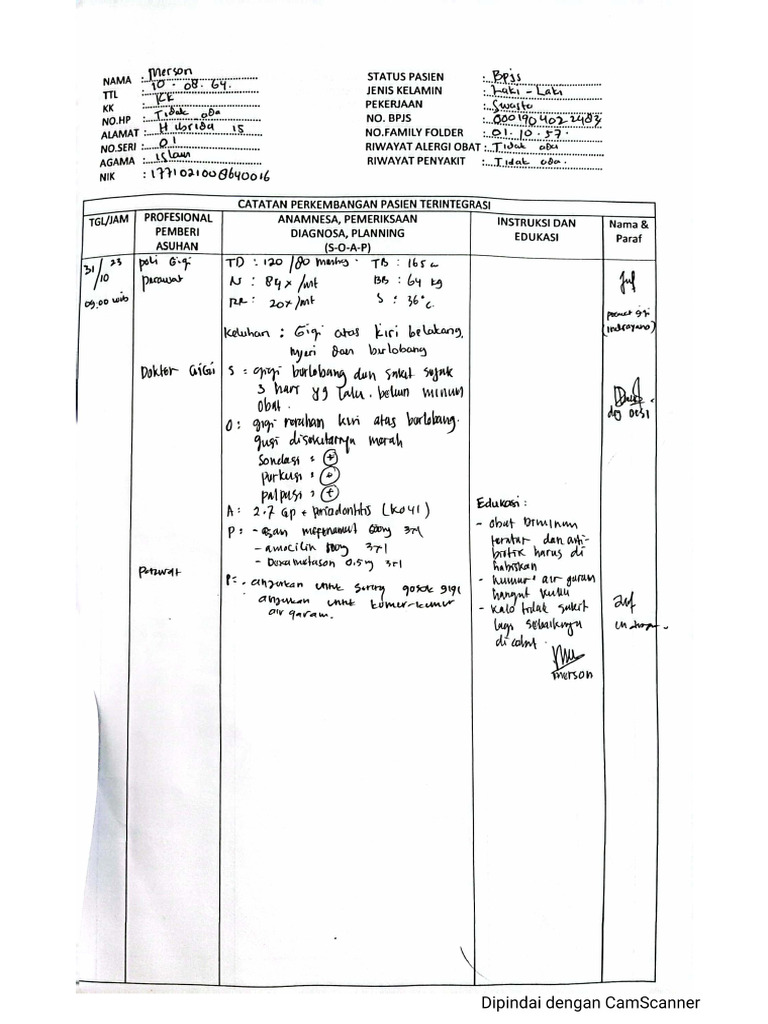 NAMA : Merson
TTL : 10 . 08 . 64.
KK : KK
NO.HP : Tidak ada
ALAMAT : Hibrida 15
NO.SERI : 01
AGAMA : Islam
NIK : 1771021008640016
STATUS PASIEN : Bpjs
JENIS KELAMIN : Laki - Laki
PEKERJAAN : Swasta
NO. BPJS : 0001904022483
NO.FAMILY FOLDER : 01. 10. 57.
RIWAYAT ALERGI OBAT : Tidak ada
RIWAYAT PENYAKIT : Tidak ada.
CATATAN PERKEMBANGAN PASIEN TERINTEGRASI
TGL/JAM
PROFESIONAL
PEMBERI
ASUHAN
ANAMNESA, PEMERIKSAAN
DIAGNOSA, PLANNING
(S-O-A-P)
INSTRUKSI DAN
EDUKASI
Nama &
Paraf
31/10 23
09.00 wib
poli Gigi
perawat
TD : 120 /80 mmHg . TB : 165 c
N : 84x /mt BB : 64 kg
RR : 20x /mt S : 36°c
Keluhan : Gigi atas kiri belakang,
nyeri dan berlobang
perawat gigi
(Indrayano)
Dokter GiGi
S = gigi berlobang dan sakit sejak
3 hari yg lalu. belum minum
obat.
O : gigi rahan kiri atas berlobang.
gusi disekitarnya merah
Sondasi : (+)
Perkusi : (+)
palpasi : (+)
A : 2.7 Gp + periodontitis (K041)
P : - asam mefenamat 500mg 3x1
- amocilin 500mg 3x1
- Dexametason 0.5mg 3x1
drg DESI
Edukasi :
- obat diminum
teratur dan anti-
biotik harus di
habiskan
- kumur² air garam
hangat kuku
- Kalo tidak sakit
lagi sebaiknya
di cabut.
merson
Perawat
P = . anjurkan untuk sering gosok gigi
anjurkan untuk kumur-kumur
air garam.
Dipindai dengan CamScanner